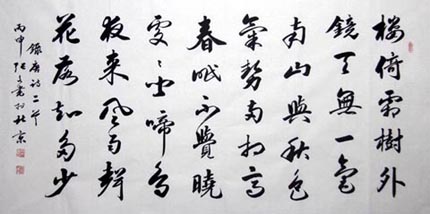 樓倚霜樹外
鏡天無一毫
南山與秋色
氣勢兩相高
春眠不覺曉
處處聞啼鳥
夜來風雨聲
花落知多少
錄唐詩二首
丙申